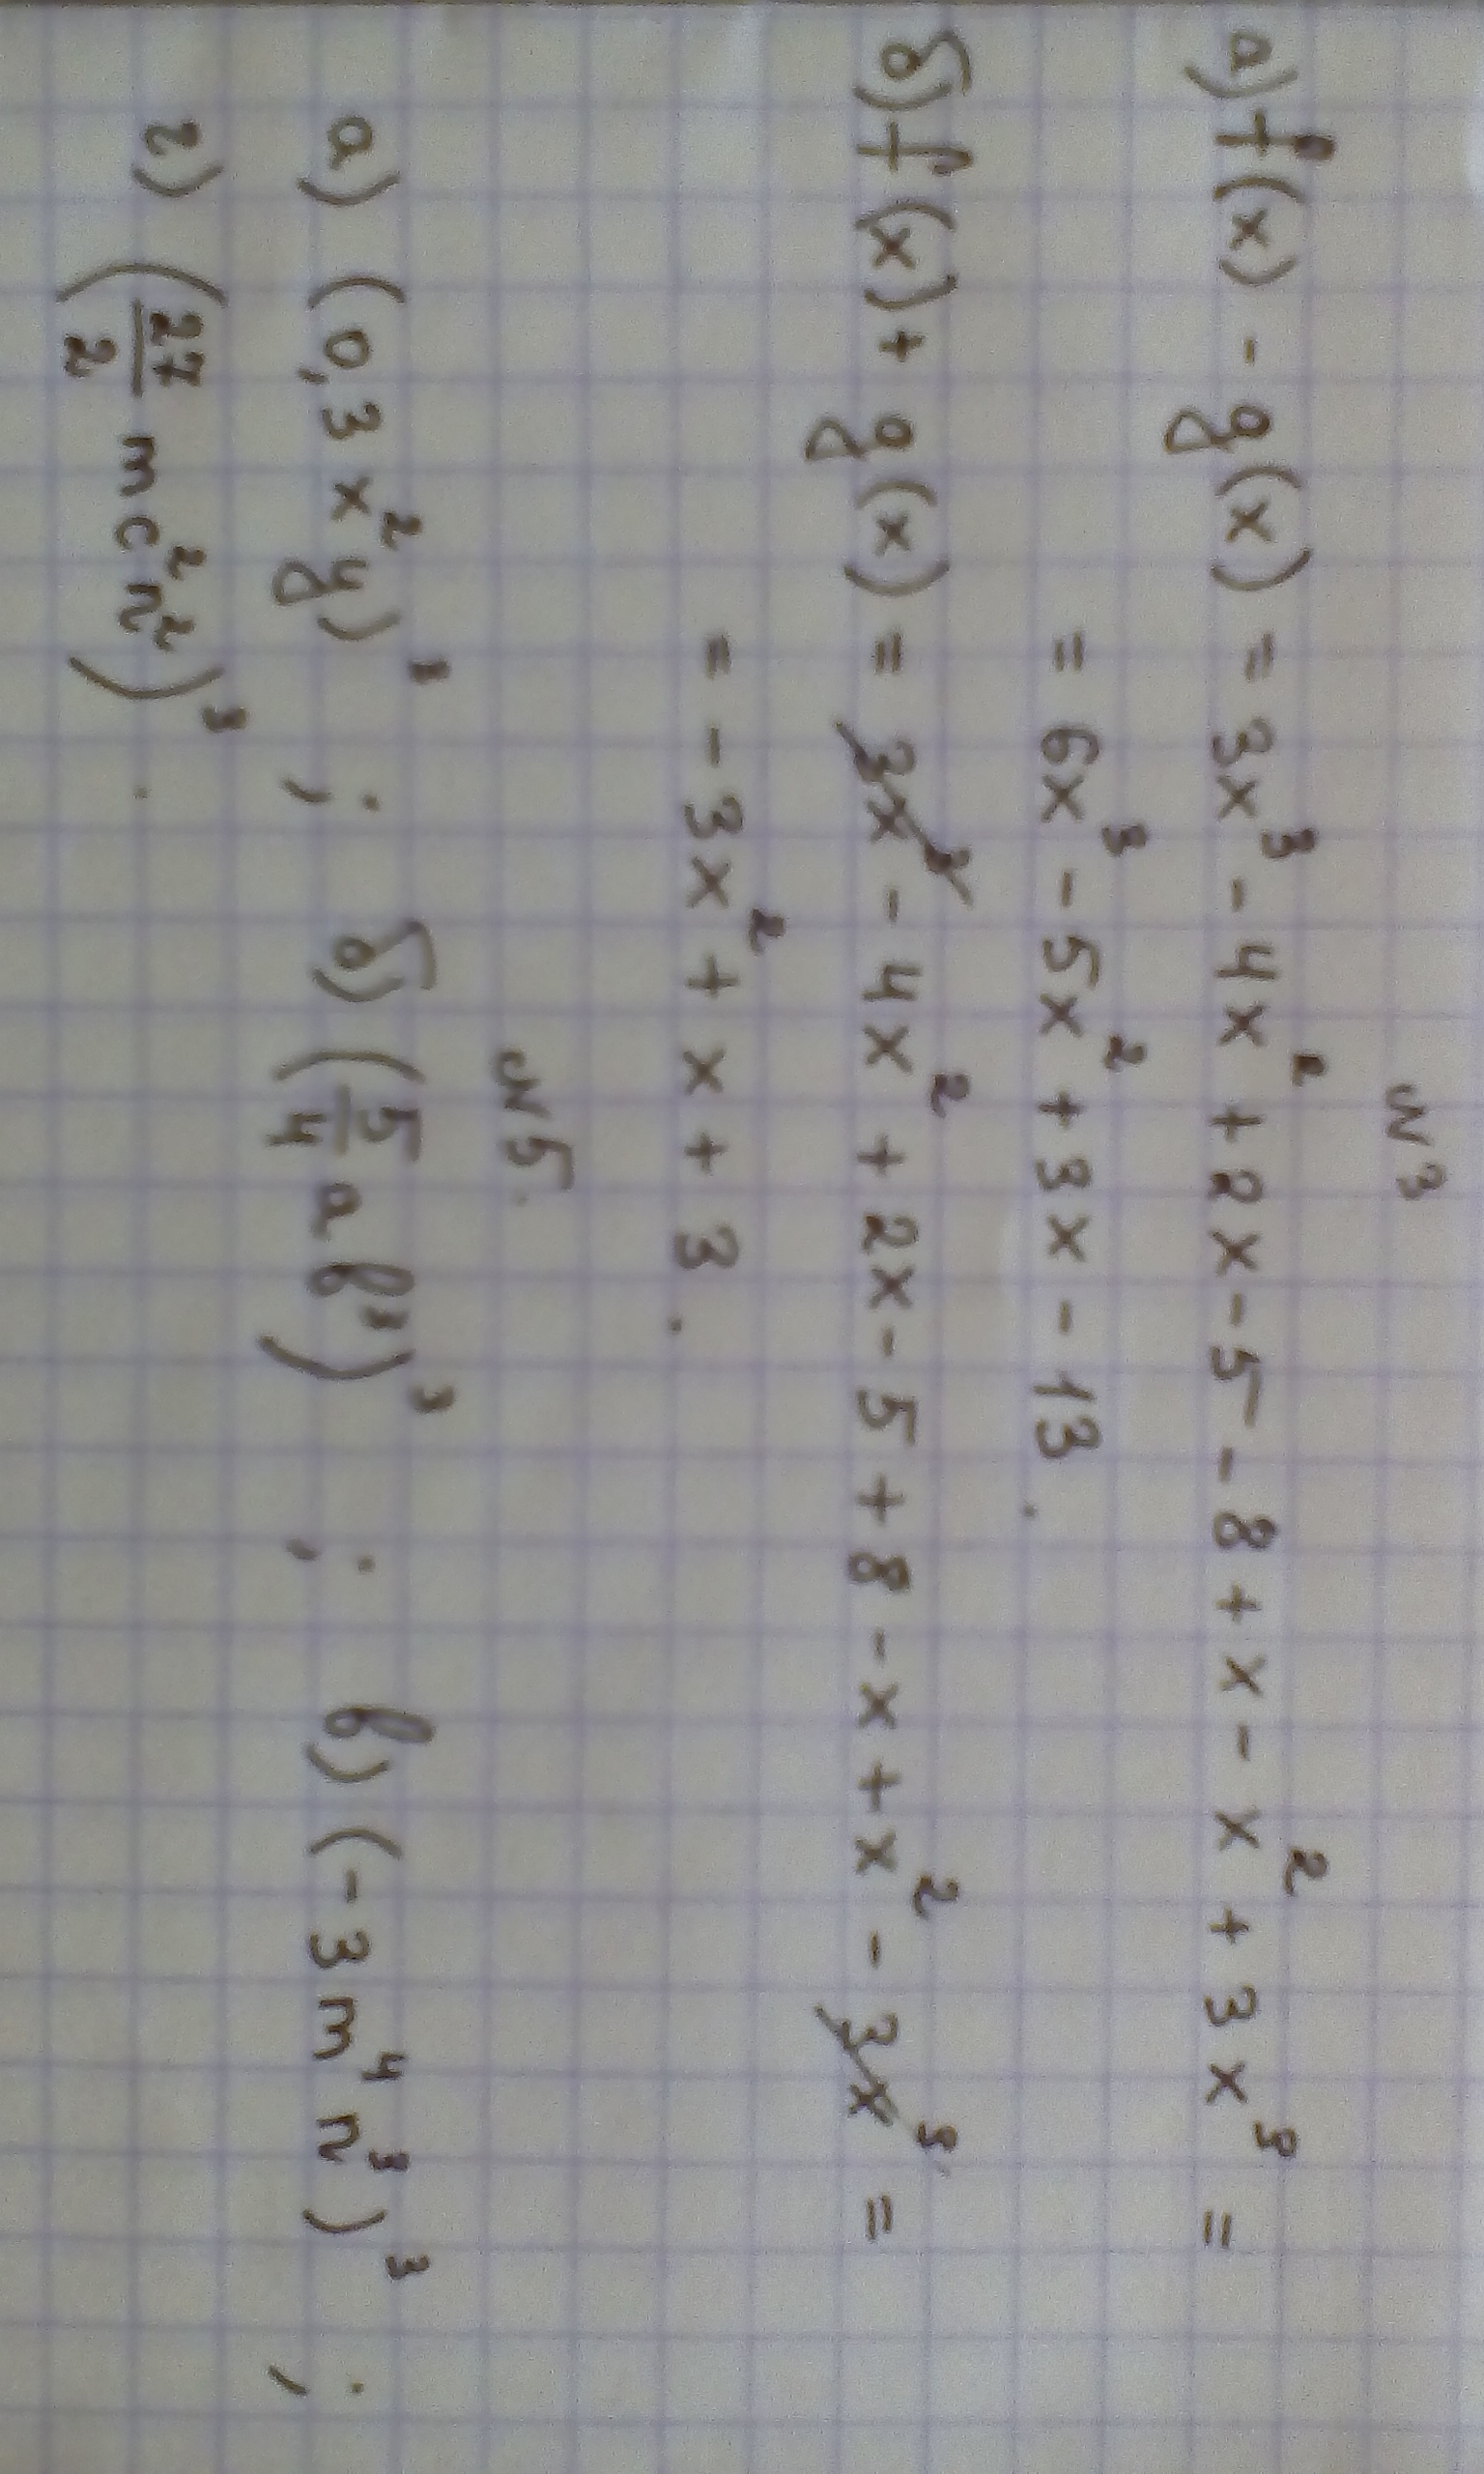 №3
а) f(x) - g(x) = 3x³ - 4x² + 2x - 5 - 8 + x - x² + 3x³ =
= 6x³ - 5x² + 3x - 13.
б) f(x) + g(x) = 3x³ - 4x² + 2x - 5 + 8 - x + x² - 3x³ =
= - 3x² + x + 3.
№5.
а) (0,3x²y)³; б) (5/4 ab³)³; в) (-3m⁴n³)³;
г) (27/2 mc²n²)³.